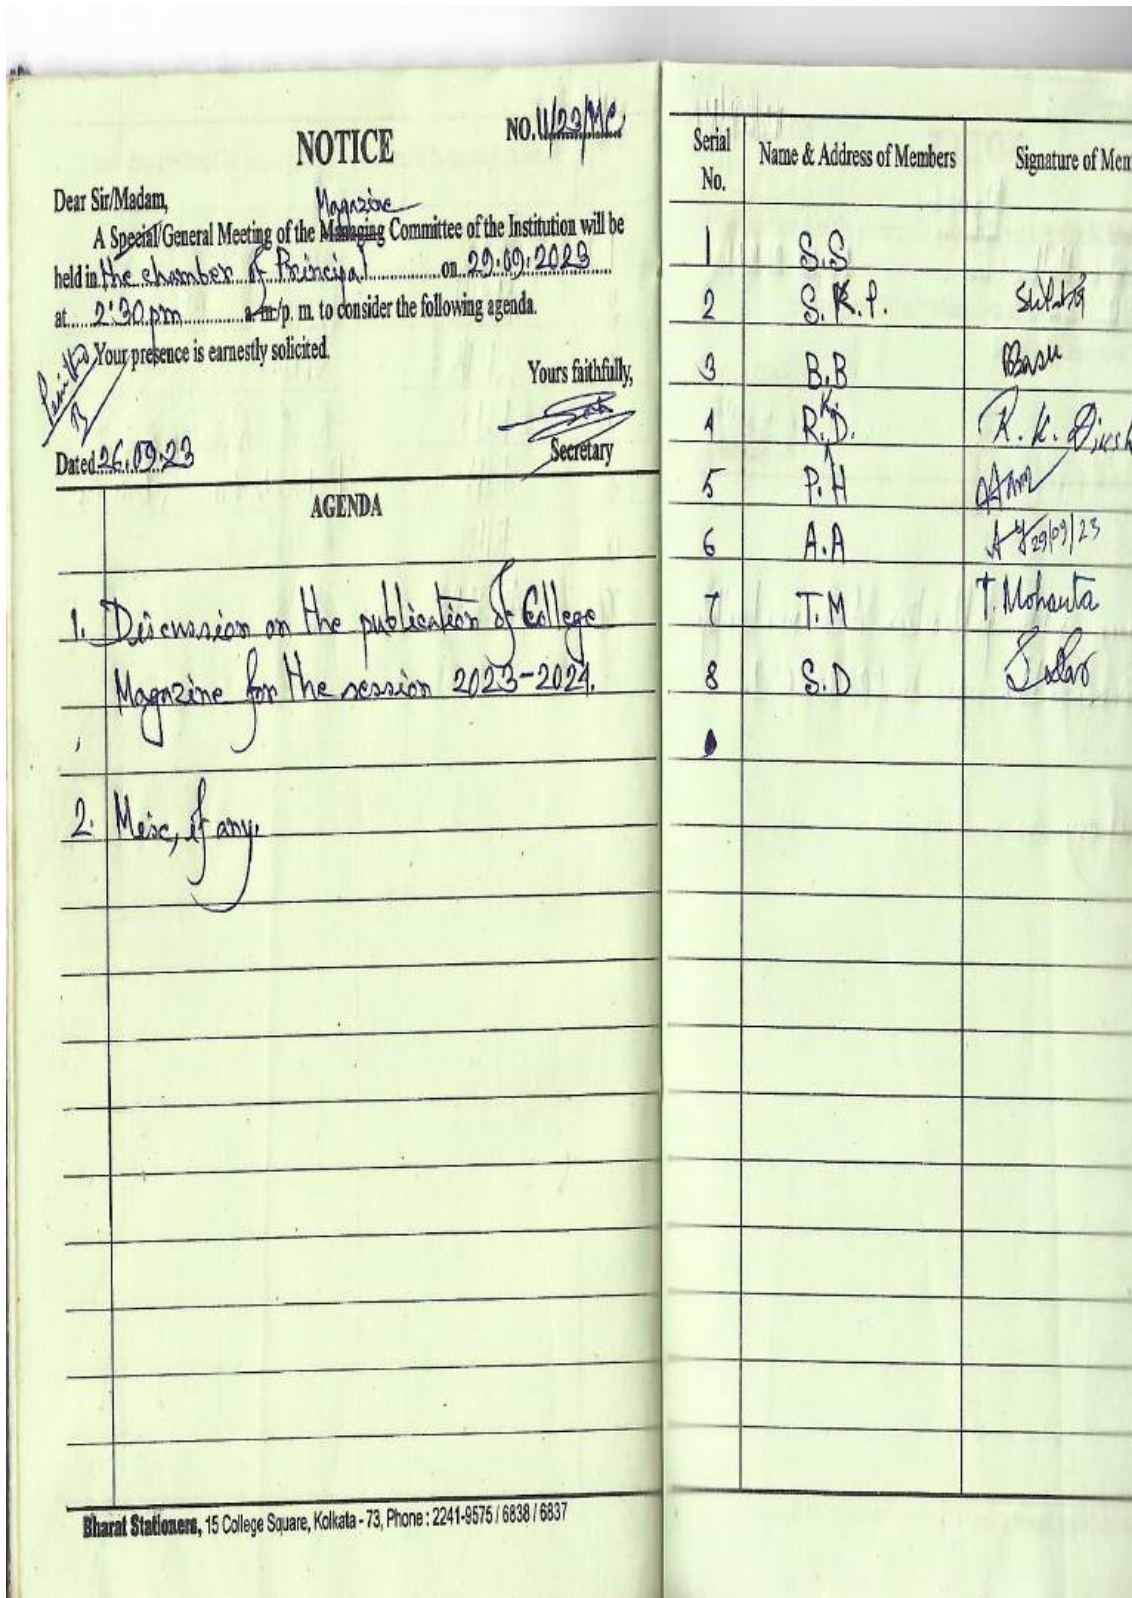 NOTICE
NO. 11/23/MC
Dear Sir/Madam,
Magazine
A Special/General Meeting of the Managing Committee of the Institution will be
held in the chamber of Principal on 29.09.2023
at 2:30 pm a.m/p. m. to consider the following agenda.
Your presence is earnestly solicited.
Yours faithfully,
Secretary
Dated 26.09.23
AGENDA
1. Discussion on the publication of College
Magazine for the session 2023-2024.
2. Misc, if any.
Bharat Stationers, 15 College Square, Kolkata - 73, Phone : 2241-9575 / 6838 / 6837
Serial No. Name & Address of Members Signature of Mem
1 S.S
2 S.K.P.
3 B.B Basu
4 R.K.D. R. K. Diksh
5 P.H
6 A.A 29/09/23
7 T.M T. Mohanta
8 S.D